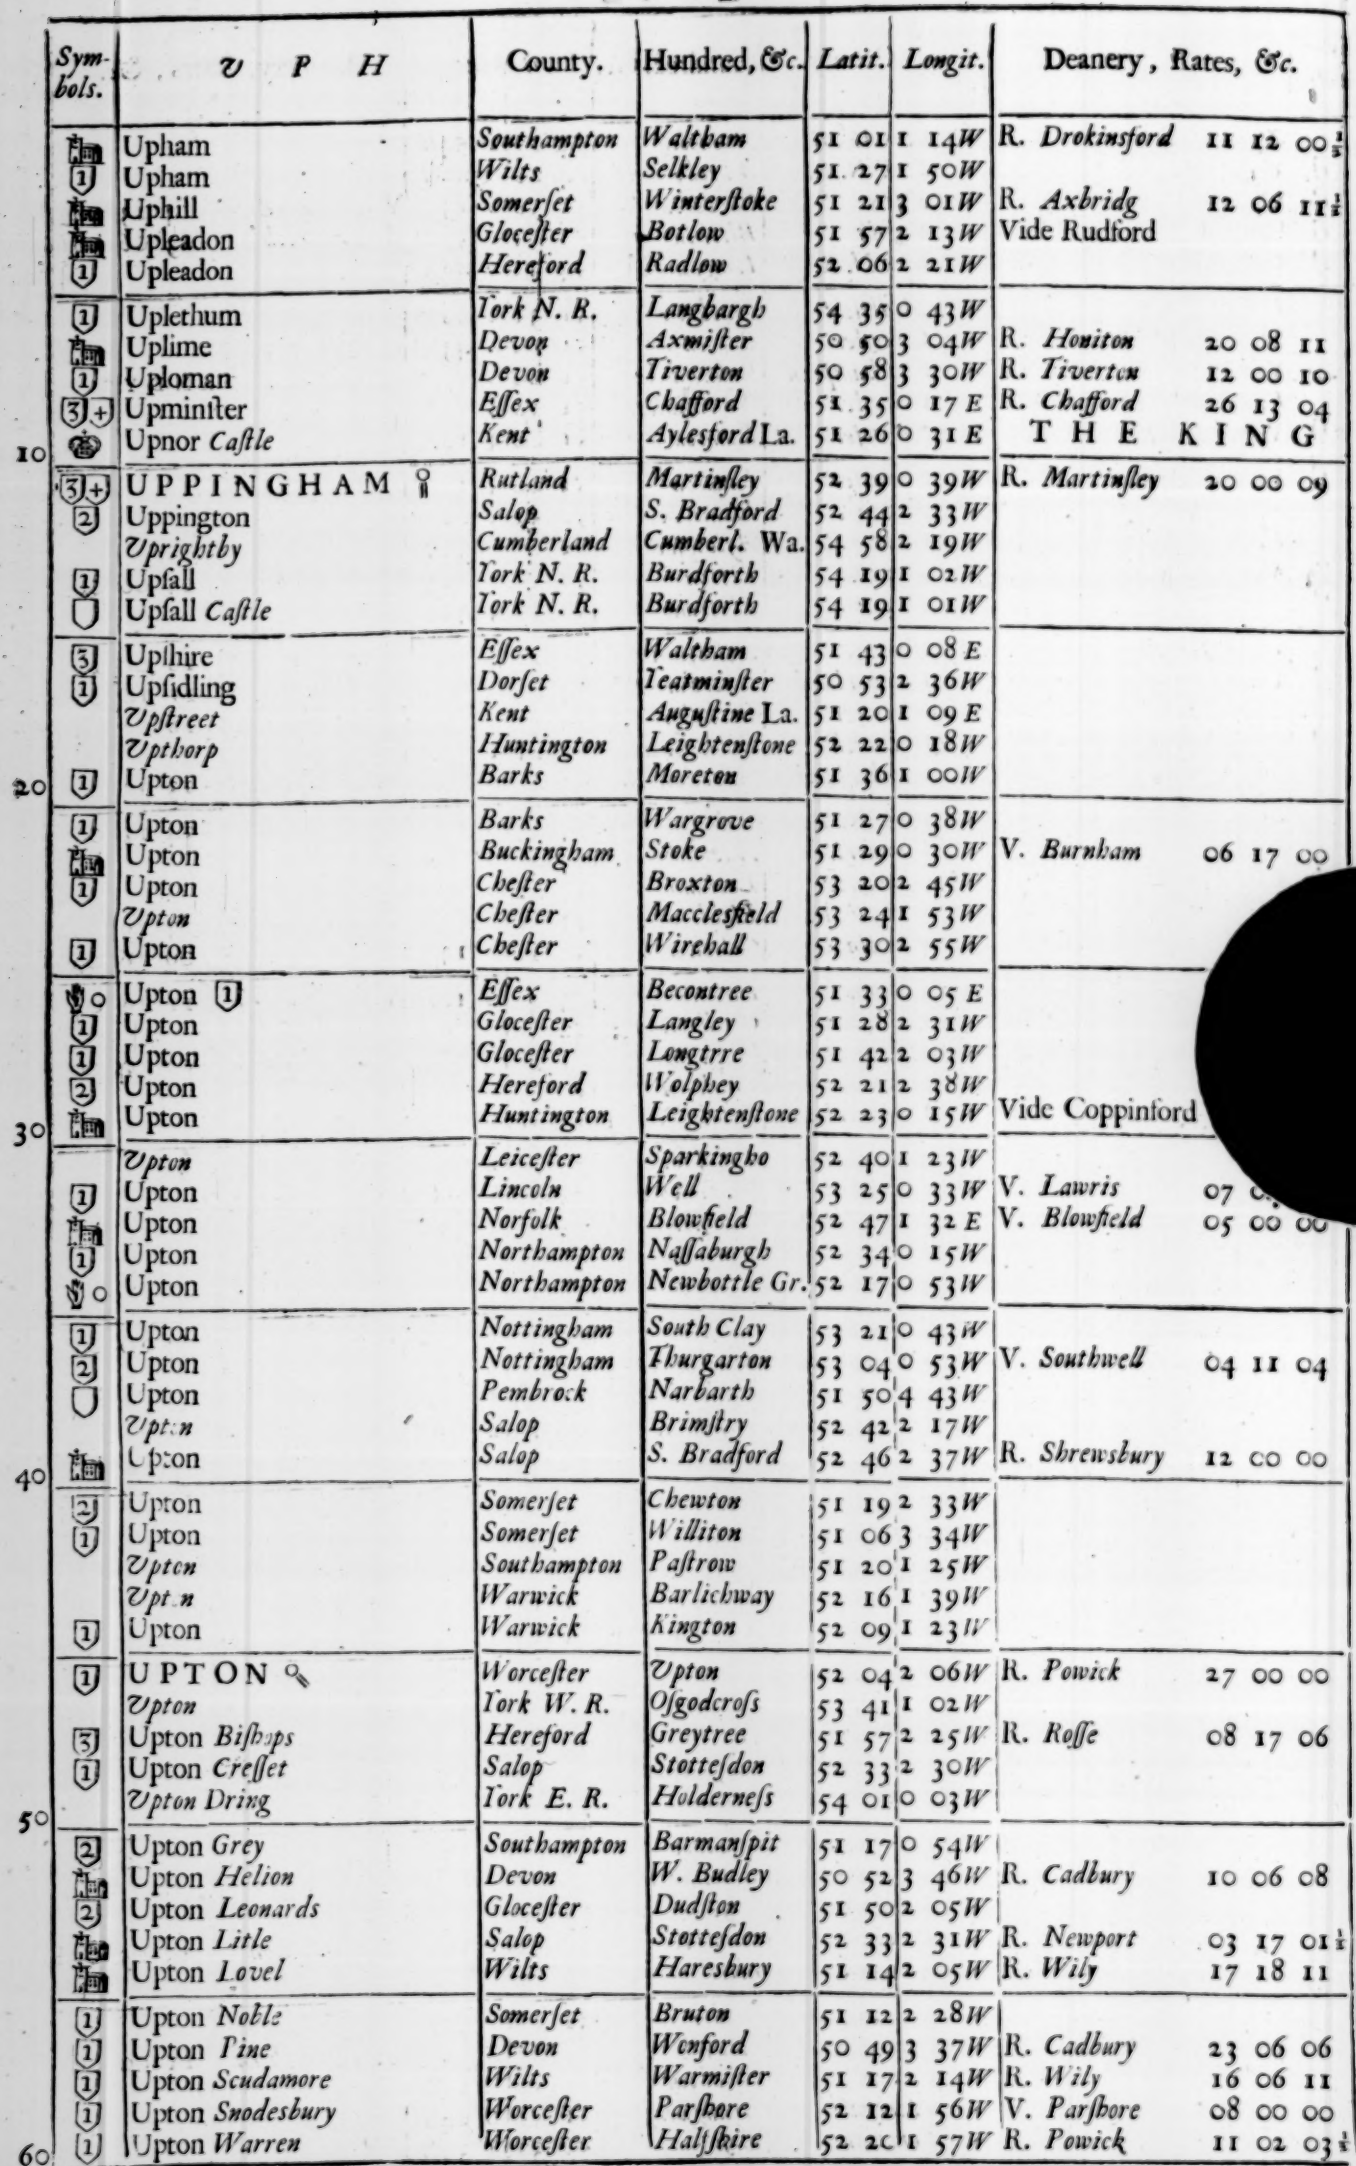 Sym-bols. U P H County. Hundred, &c. Latit. Longit. Deanery, Rates, &c.
Upham Southampton Waltham 51 01 1 14W R. Drokinsford 11 12 00½
1 Upham Wilts Selkley 51 27 1 50W
Uphill Somerſet Winterſtoke 51 21 3 01W R. Axbridg 12 06 11½
Upleadon Gloceſter Botlow 51 57 2 13W Vide Rudford
1 Upleadon Hereford Radlow 52 06 2 21W
1 Uplethum York N. R. Langbargh 54 35 0 43W
Uplime Devon Axmiſter 50 50 3 04W R. Honiton 20 08 11
1 Uploman Devon Tiverton 50 58 3 30W R. Tiverton 12 00 10
3 + Upminſter Eſſex Chafford 51 35 0 17 E R. Chafford 26 13 04
10 Upnor Caſtle Kent Aylesford La. 51 26 0 31 E THE KING
3 + UPPINGHAM Rutland Martinſley 52 39 0 39W R. Martinſley 20 00 09
2 Uppington Salop S. Bradford 52 44 2 33W
Uprightby Cumberland Cumberl. Wa. 54 58 2 19W
1 Upſall York N. R. Burdforth 54 19 1 02W
Upſall Caſtle York N. R. Burdforth 54 19 1 01W
3 Upſhire Eſſex Waltham 51 43 0 08 E
1 Upſidling Dorſet Yeatminſter 50 53 2 36W
Upſtreet Kent Auguſtine La. 51 20 1 09 E
Upthorp Huntington Leightenſtone 52 22 0 18W
20 1 Upton Barks Moreton 51 36 1 00W
1 Upton Barks Wargrove 51 27 0 38W
Upton Buckingham Stoke 51 29 0 30W V. Burnham 06 17 00
1 Upton Cheſter Broxton 53 20 2 45W
Upton Cheſter Macclesfield 53 24 1 53W
1 Upton Cheſter Wirehall 53 30 2 55W
Upton 1 Eſſex Becontree 51 33 0 05 E
1 Upton Gloceſter Langley 51 28 2 31W
1 Upton Gloceſter Longtrre 51 42 2 03W
2 Upton Hereford Wolphey 52 21 2 38W
30 Upton Huntington Leightenſtone 52 23 0 15W Vide Coppinford
Upton Leiceſter Sparkingho 52 40 1 23W
1 Upton Lincoln Well 53 25 0 33W V. Lawris 07
Upton Norfolk Blowfield 52 47 1 32 E V. Blowfield 05 00 00
1 Upton Northampton Naſſaburgh 52 34 0 15W
Upton Northampton Newbottle Gr. 52 17 0 53W
1 Upton Nottingham South Clay 53 21 0 43W
2 Upton Nottingham Thurgarton 53 04 0 53W V. Southwell 04 11 04
Upton Pembrock Narbarth 51 50 4 43W
Upton Salop Brimſtry 52 42 2 17W
40 Upton Salop S. Bradford 52 46 2 37W R. Shrewsbury 12 00 00
2 Upton Somerſet Chewton 51 19 2 33W
1 Upton Somerſet Williton 51 06 3 34W
Upton Southampton Paſtrow 51 20 1 25W
Upton Warwick Barlichway 52 16 1 39W
1 Upton Warwick Kington 52 09 1 23W
1 UPTON Worceſter Upton 52 04 2 06W R. Powick 27 00 00
Upton York W. R. Oſgodcroſs 53 41 1 02W
3 Upton Biſhops Hereford Greytree 51 57 2 25W R. Roſſe 08 17 06
1 Upton Creſſet Salop Stotteſdon 52 33 2 30W
50 Upton Dring York E. R. Holderneſs 54 01 0 03W
2 Upton Grey Southampton Barmanſpit 51 17 0 54W
Upton Helion Devon W. Budley 50 52 3 46W R. Cadbury 10 06 08
2 Upton Leonards Gloceſter Dudſton 51 50 2 05W
Upton Litle Salop Stotteſdon 52 33 2 31W R. Newport 03 17 01½
Upton Lovel Wilts Haresbury 51 14 2 05W R. Wily 17 18 11
1 Upton Noble Somerſet Bruton 51 12 2 28W
1 Upton Pine Devon Wonford 50 49 3 37W R. Cadbury 23 06 06
1 Upton Scudamore Wilts Warmiſter 51 17 2 14W R. Wily 16 06 11
1 Upton Snodesbury Worceſter Parſhore 52 12 1 56W V. Parſhore 08 00 00
60 1 Upton Warren Worceſter Halfſhire 52 20 1 57W R. Powick 11 02 03½